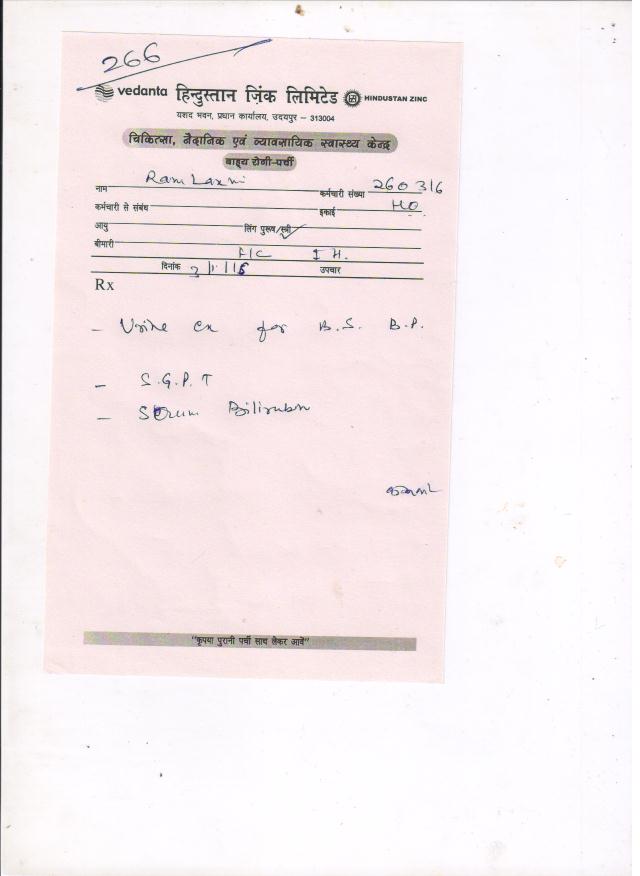 266
vedanta हिन्दुस्तान ज़िंक लिमिटेड HINDUSTAN ZINC
यशद भवन, प्रधान कार्यालय, उदयपुर – 313004
चिकित्सा, नैदानिक एवं व्यावसायिक स्वास्थ्य केन्द्र
बाह्य रोगी-पर्ची
नाम Ram Laxmi कर्मचारी संख्या 260316
कर्मचारी से संबंध इकाई HO
आयु लिंग पुरूष/स्त्री
बीमारी
दिनांक उपचार
Rx
– Urine for B.S. B.P.
– S.G.P.T
– Serum Bilirubin
"कृपया पुरानी पर्ची साथ लेकर आवें"